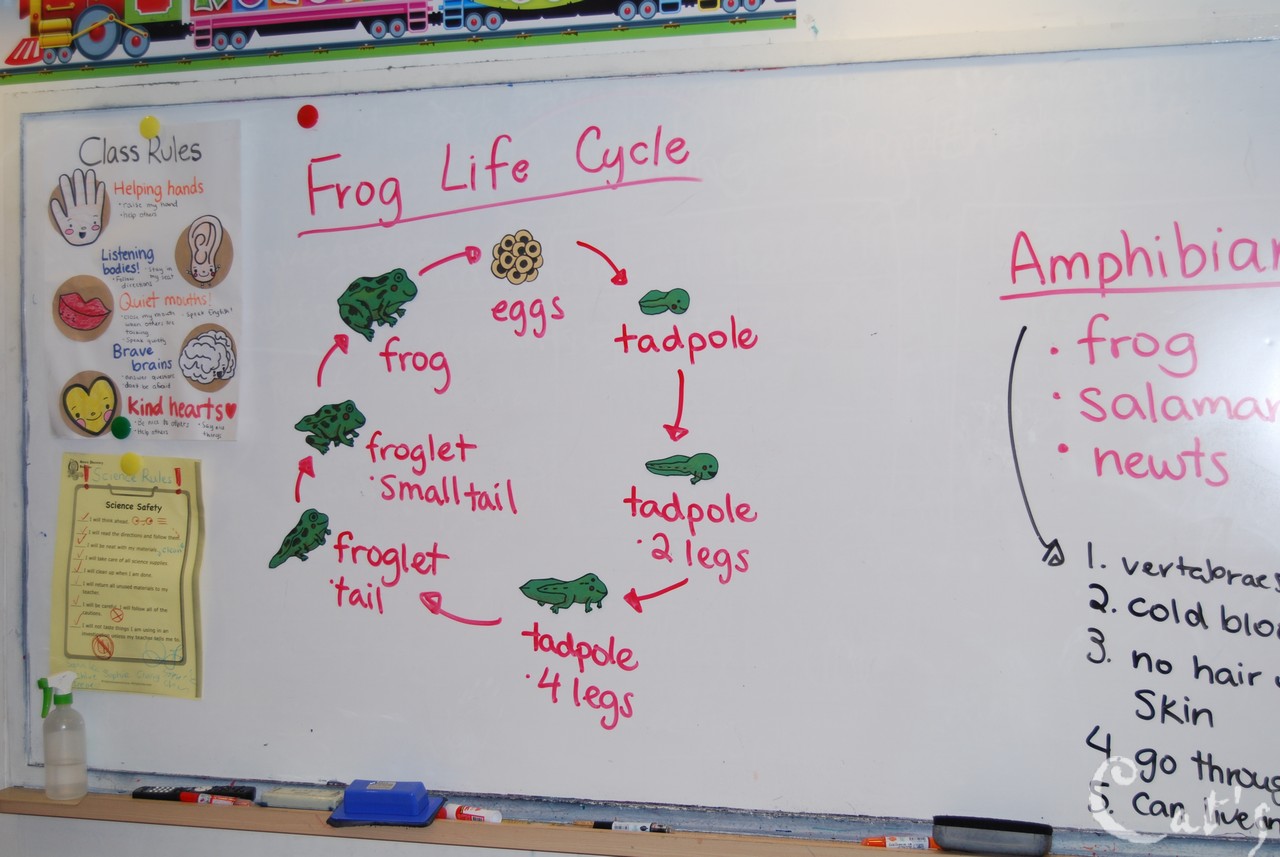 Class Rules
Helping hands
• raise my hand
• help others
Listening
bodies!
• Follow
directions
Quiet mouths!
• Speak English!
• Speak quietly
Brave
brains
• answer questions
• dont be afraid
kind hearts
• Be nice to others
• Help others
Science Rules
Science Safety
I will think ahead.
I will read the directions and follow them.
I will be neat with my materials.
I will take care of all science supplies.
I will clean up when I am done.
I will return all unused materials to my
teacher.
I will be careful. I will follow all of the
cautions.
I will not taste things I am using in an
investigation unless my teacher tells me to.
Frog Life Cycle
eggs
tadpole
tadpole
• 2 legs
tadpole
• 4 legs
froglet
• tail
froglet
• Small tail
frog
Amphibian
• frog
• salaman
• newts
1. vertabraes
2. cold bloo
3. no hair
Skin
4. go throug
5. Can live on
Cat's